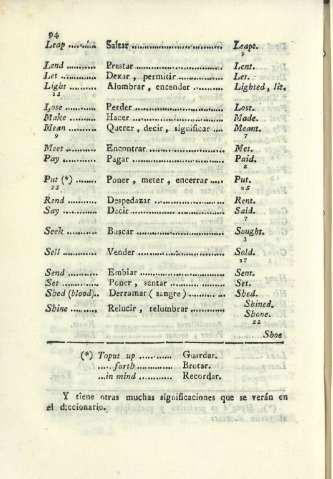 94
Leap ......... Saltar ........................ Leapt.
9
Lend ......... Prestar ........................ Lent.
Let ............ Dexar, permitir............ Let.
Light ......... Alumbrar, encender ......... Lighted, lit.
22
Lose ......... Perder ........................ Lost.
Make ......... Hacer ........................ Made.
Mean ......... Querer, decir, significar .... Meant.
9 7
Meet ......... Encontrar ..................... Met.
Pay ............ Pagar ........................ Paid.
8
Put (*) ....... Poner, meter, encerrar ..... Put.
22 25
Rend ......... Despedazar .................. Rent.
Say ............ Decir ........................ Said.
7
Seek ......... Buscar ........................ Sought.
3
Sell ............ Vender ........................ Sold.
17
Send ......... Embiar ........................ Sent.
Set ............ Poner, sentar ............... Set.
Shed (blood).. Derramar (sangre) ............ Shed.
Shine ......... Relucir, relumbrar ............ Shined.
Shone.
22
Shoe
(*) Toput up ............ Guardar.
..... forth ............ Brotar.
...in mind ............ Recordar.
Y tiene otras muchas significaciones que se verán en
el diccionario.